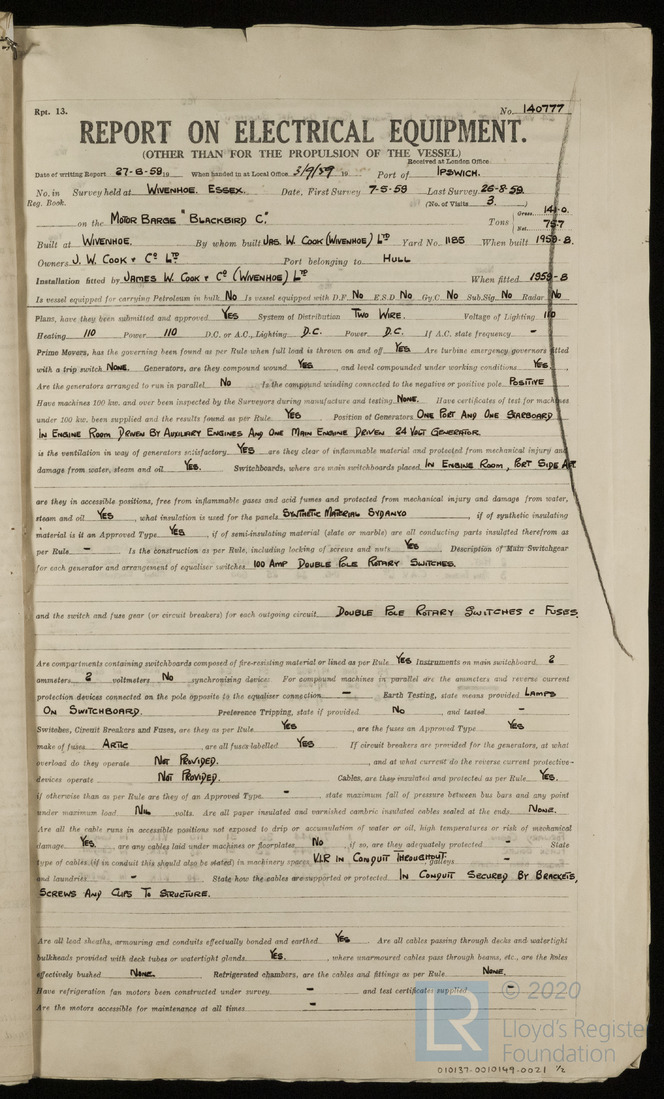 Rpt. 13. No. 140777
REPORT ON ELECTRICAL EQUIPMENT.
(OTHER THAN FOR THE PROPULSION OF THE VESSEL)
Received at London Office
Date of writing Report 27-8-59 19 When handed in at Local Office 3/9/59 19 Port of IPSWICH.
No. in Survey held at WIVENHOE. ESSEX. Date, First Survey 7-5-59 Last Survey 26-8-59.
Reg. Book. (No. of Visits 3.)
on the MOTOR BARGE "BLACKBIRD C". Tons Gross 141.0. Net 75.7
Built at WIVENHOE. By whom built JAS. W. COOK (WIVENHOE) LTD Yard No. 1185 When built 1959-8.
Owners J. W. COOK & Co LTD Port belonging to HULL
Installation fitted by JAMES W. COOK & Co (WIVENHOE) LTD When fitted 1959-8
Is vessel equipped for carrying Petroleum in bulk NO Is vessel equipped with D.F. NO E.S.D NO Gy.C. NO Sub.Sig. NO Radar NO
Plans, have they been submitted and approved YES System of Distribution TWO WIRE. Voltage of Lighting 110
Heating 110 Power 110 D.C. or A.C., Lighting D.C. Power D.C. If A.C. state frequency -
Prime Movers, has the governing been found as per Rule when full load is thrown on and off YES Are turbine emergency governors fitted
with a trip switch NONE. Generators, are they compound wound YES, and level compounded under working conditions YES.
Are the generators arranged to run in parallel NO Is the compound winding connected to the negative or positive pole POSITIVE
Have machines 100 kw. and over been inspected by the Surveyors during manufacture and testing NONE. Have certificates of test for machines
under 100 kw. been supplied and the results found as per Rule YES Position of Generators ONE PORT AND ONE STARBOARD
IN ENGINE ROOM DRIVEN BY AUXILIARY ENGINES AND ONE MAIN ENGINE DRIVEN 24 VOLT GENERATOR
is the ventilation in way of generators satisfactory YES are they clear of inflammable material and protected from mechanical injury and
damage from water, steam and oil YES. Switchboards, where are main switchboards placed IN ENGINE ROOM, PORT SIDE AFT
are they in accessible positions, free from inflammable gases and acid fumes and protected from mechanical injury and damage from water,
steam and oil YES, what insulation is used for the panels SYNTHETIC MATERIAL SYDANYO, if of synthetic insulating
material is it an Approved Type YES, if of semi-insulating material (slate or marble) are all conducting parts insulated therefrom as
per Rule - Is the construction as per Rule, including locking of screws and nuts YES Description of Main Switchgear
for each generator and arrangement of equaliser switches 100 AMP DOUBLE POLE ROTARY SWITCHES.
and the switch and fuse gear (or circuit breakers) for each outgoing circuit DOUBLE POLE ROTARY SWITCHES & FUSES.
Are compartments containing switchboards composed of fire-resisting material or lined as per Rule YES Instruments on main switchboard 2
ammeters 2 voltmeters NO synchronizing devices. For compound machines in parallel are the ammeters and reverse current
protection devices connected on the pole opposite to the equaliser connection - Earth Testing, state means provided LAMPS
ON SWITCHBOARD. Preference Tripping, state if provided NO, and tested -
Switches, Circuit Breakers and Fuses, are they as per Rule YES, are the fuses an Approved Type YES
make of fuses ARTIC, are all fuses labelled YES If circuit breakers are provided for the generators, at what
overload do they operate NOT PROVIDED., and at what current do the reverse current protective-
devices operate NOT PROVIDED. Cables, are they insulated and protected as per Rule YES.
if otherwise than as per Rule are they of an Approved Type - state maximum fall of pressure between bus bars and any point
under maximum load NIL volts. Are all paper insulated and varnished cambric insulated cables sealed at the ends NONE.
Are all the cable runs in accessible positions not exposed to drip or accumulation of water or oil, high temperatures or risk of mechanical
damage YES. are any cables laid under machines or floorplates NO, if so, are they adequately protected - State
type of cables (if in conduit this should also be stated) in machinery spaces V.I.R IN CONDUIT THROUGHOUT. galleys -
and laundries - State how the cables are supported or protected. IN CONDUIT SECURED BY BRACKETS,
SCREWS AND CLIPS TO STRUCTURE.
Are all lead sheaths, armouring and conduits effectually bonded and earthed YES Are all cables passing through decks and watertight
bulkheads provided with deck tubes or watertight glands. YES., where unarmoured cables pass through beams, etc., are the holes
effectively bushed NONE. Refrigerated chambers, are the cables and fittings as per Rule NONE.
Have refrigeration fan motors been constructed under survey - and test certificates supplied -
Are the motors accessible for maintenance at all times -
© 2020
LR Lloyd's Register
Foundation
010137-0010149-0021 1/2